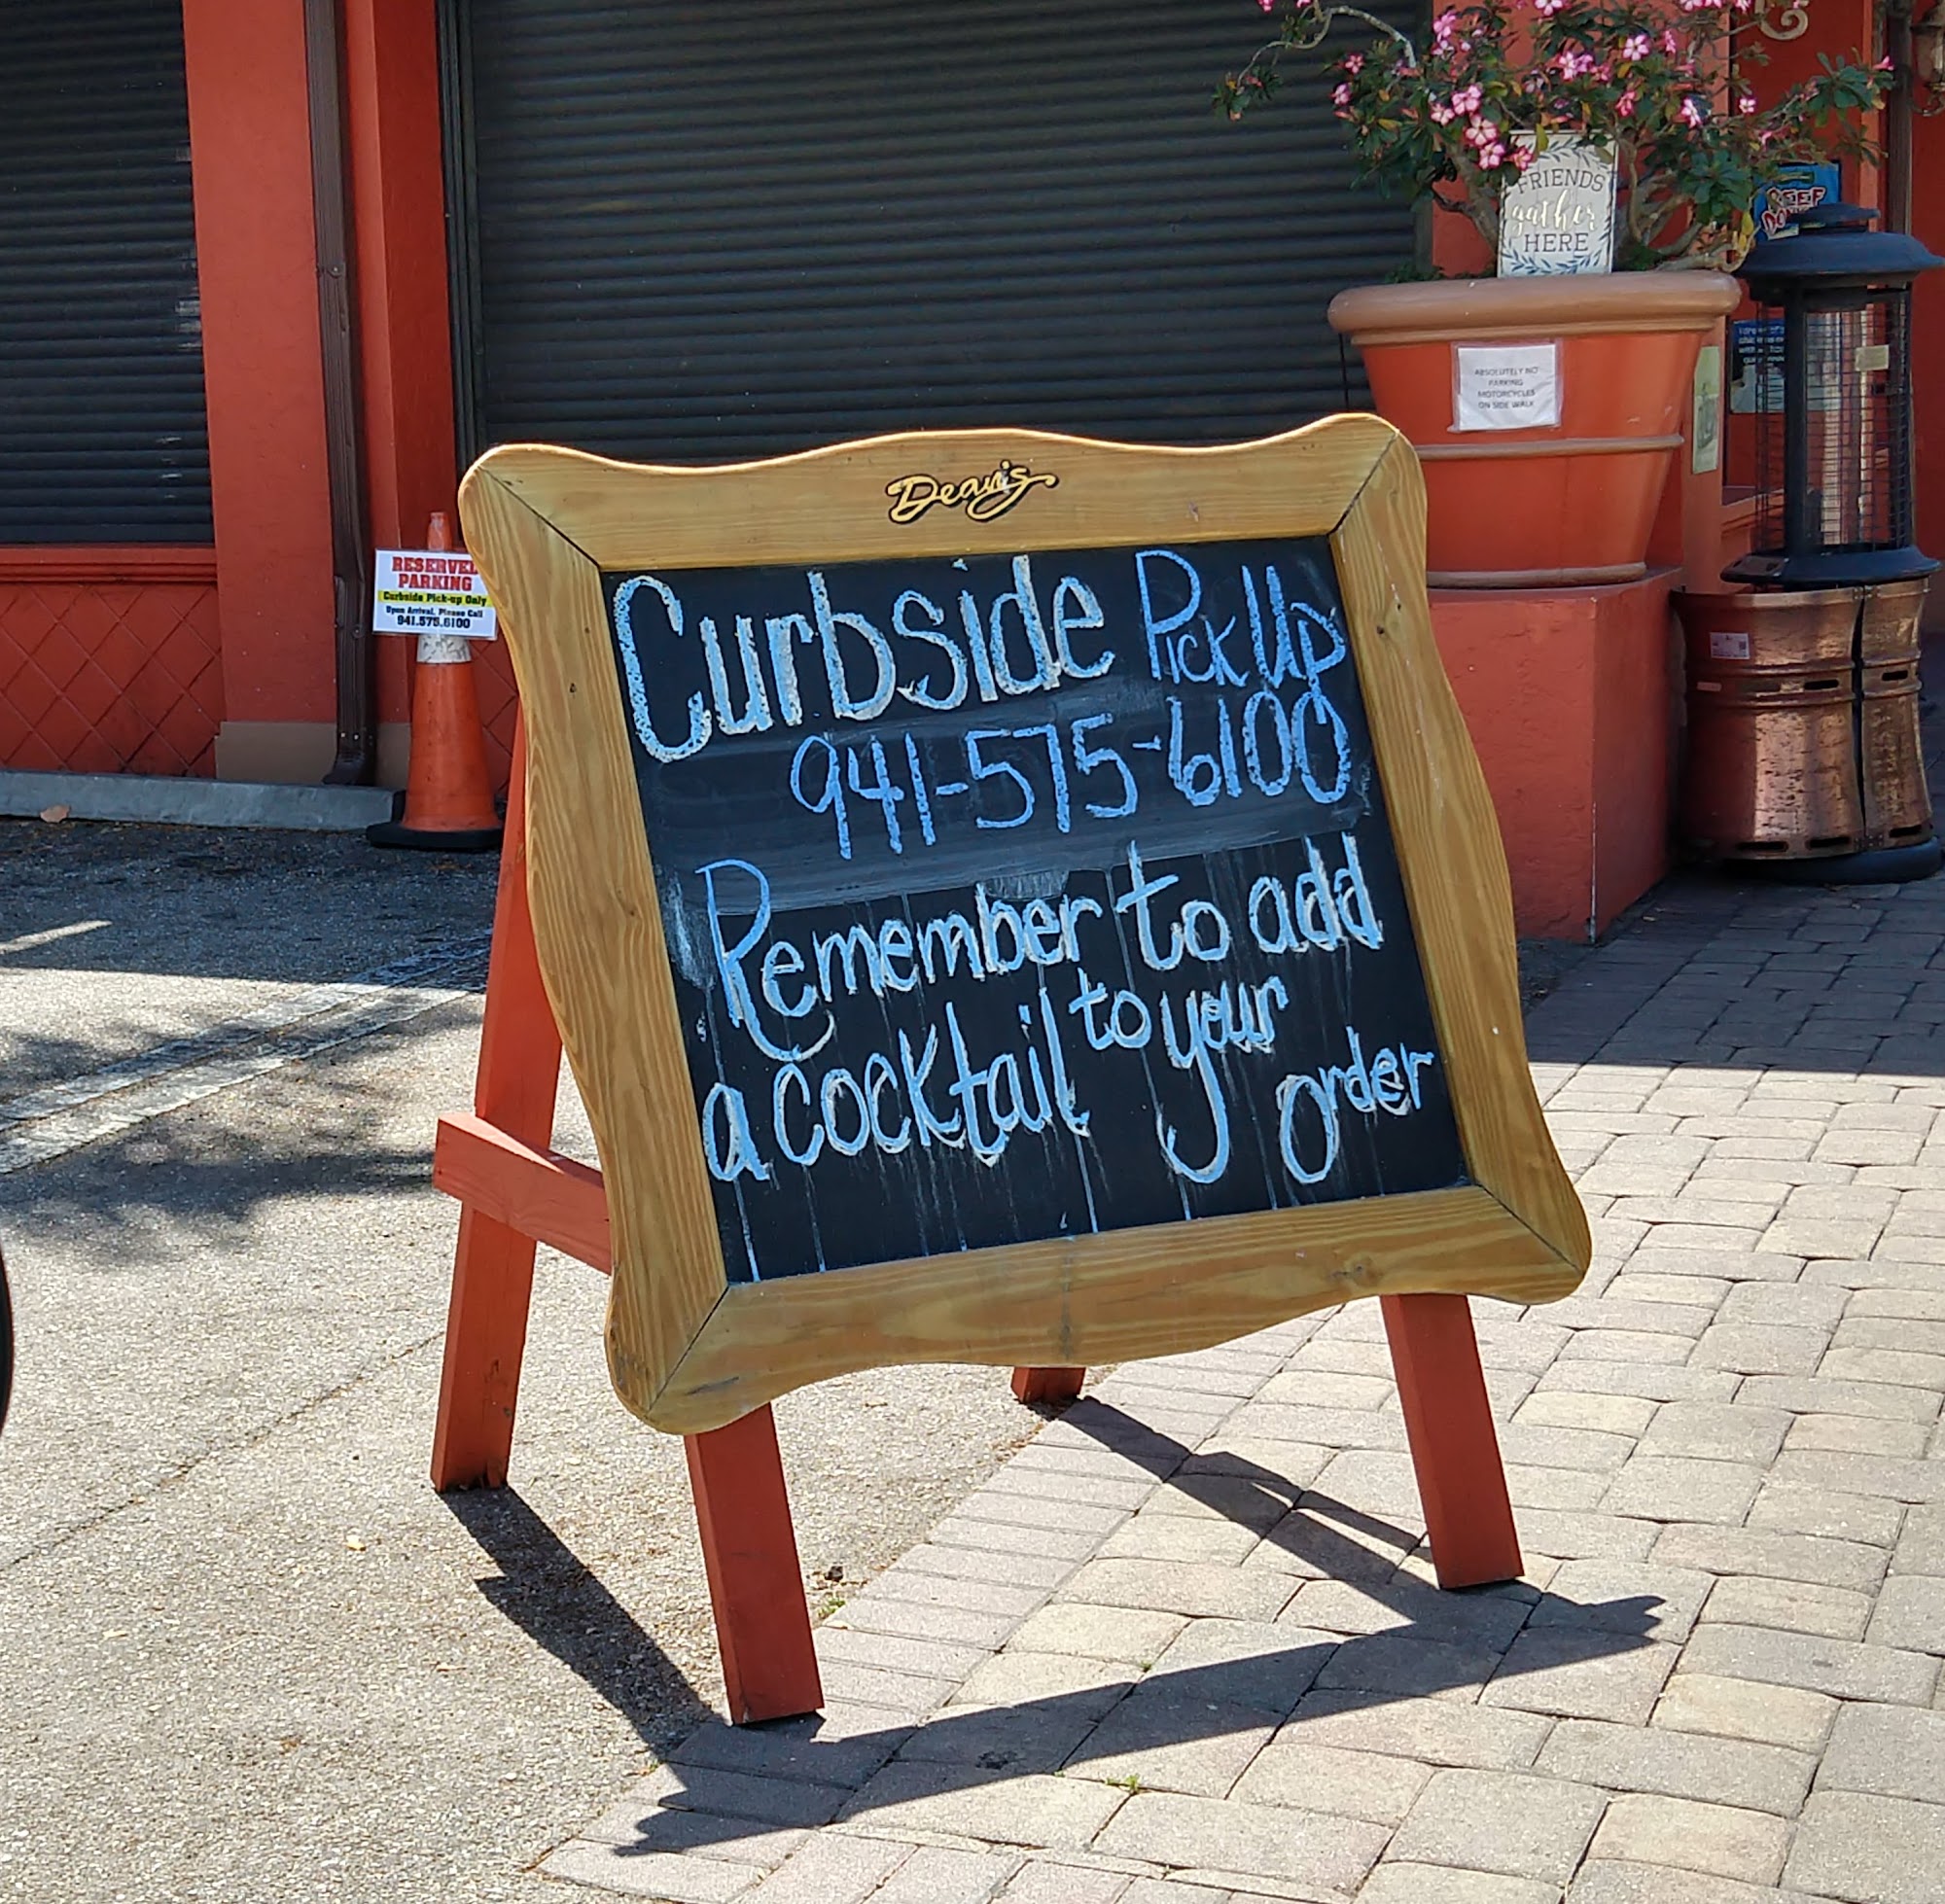 Dean's
Curbside Pick Up
941-575-6100
Remember to add
a cocktail to your
order
RESERVED
PARKING
Curbside Pick-up Only
Upon Arrival, Please Call
941.575.6100
FRIENDS
gather
HERE
ABSOLUTELY NO
PARKING
MOTORCYCLES
ON SIDE WALK
BEEF